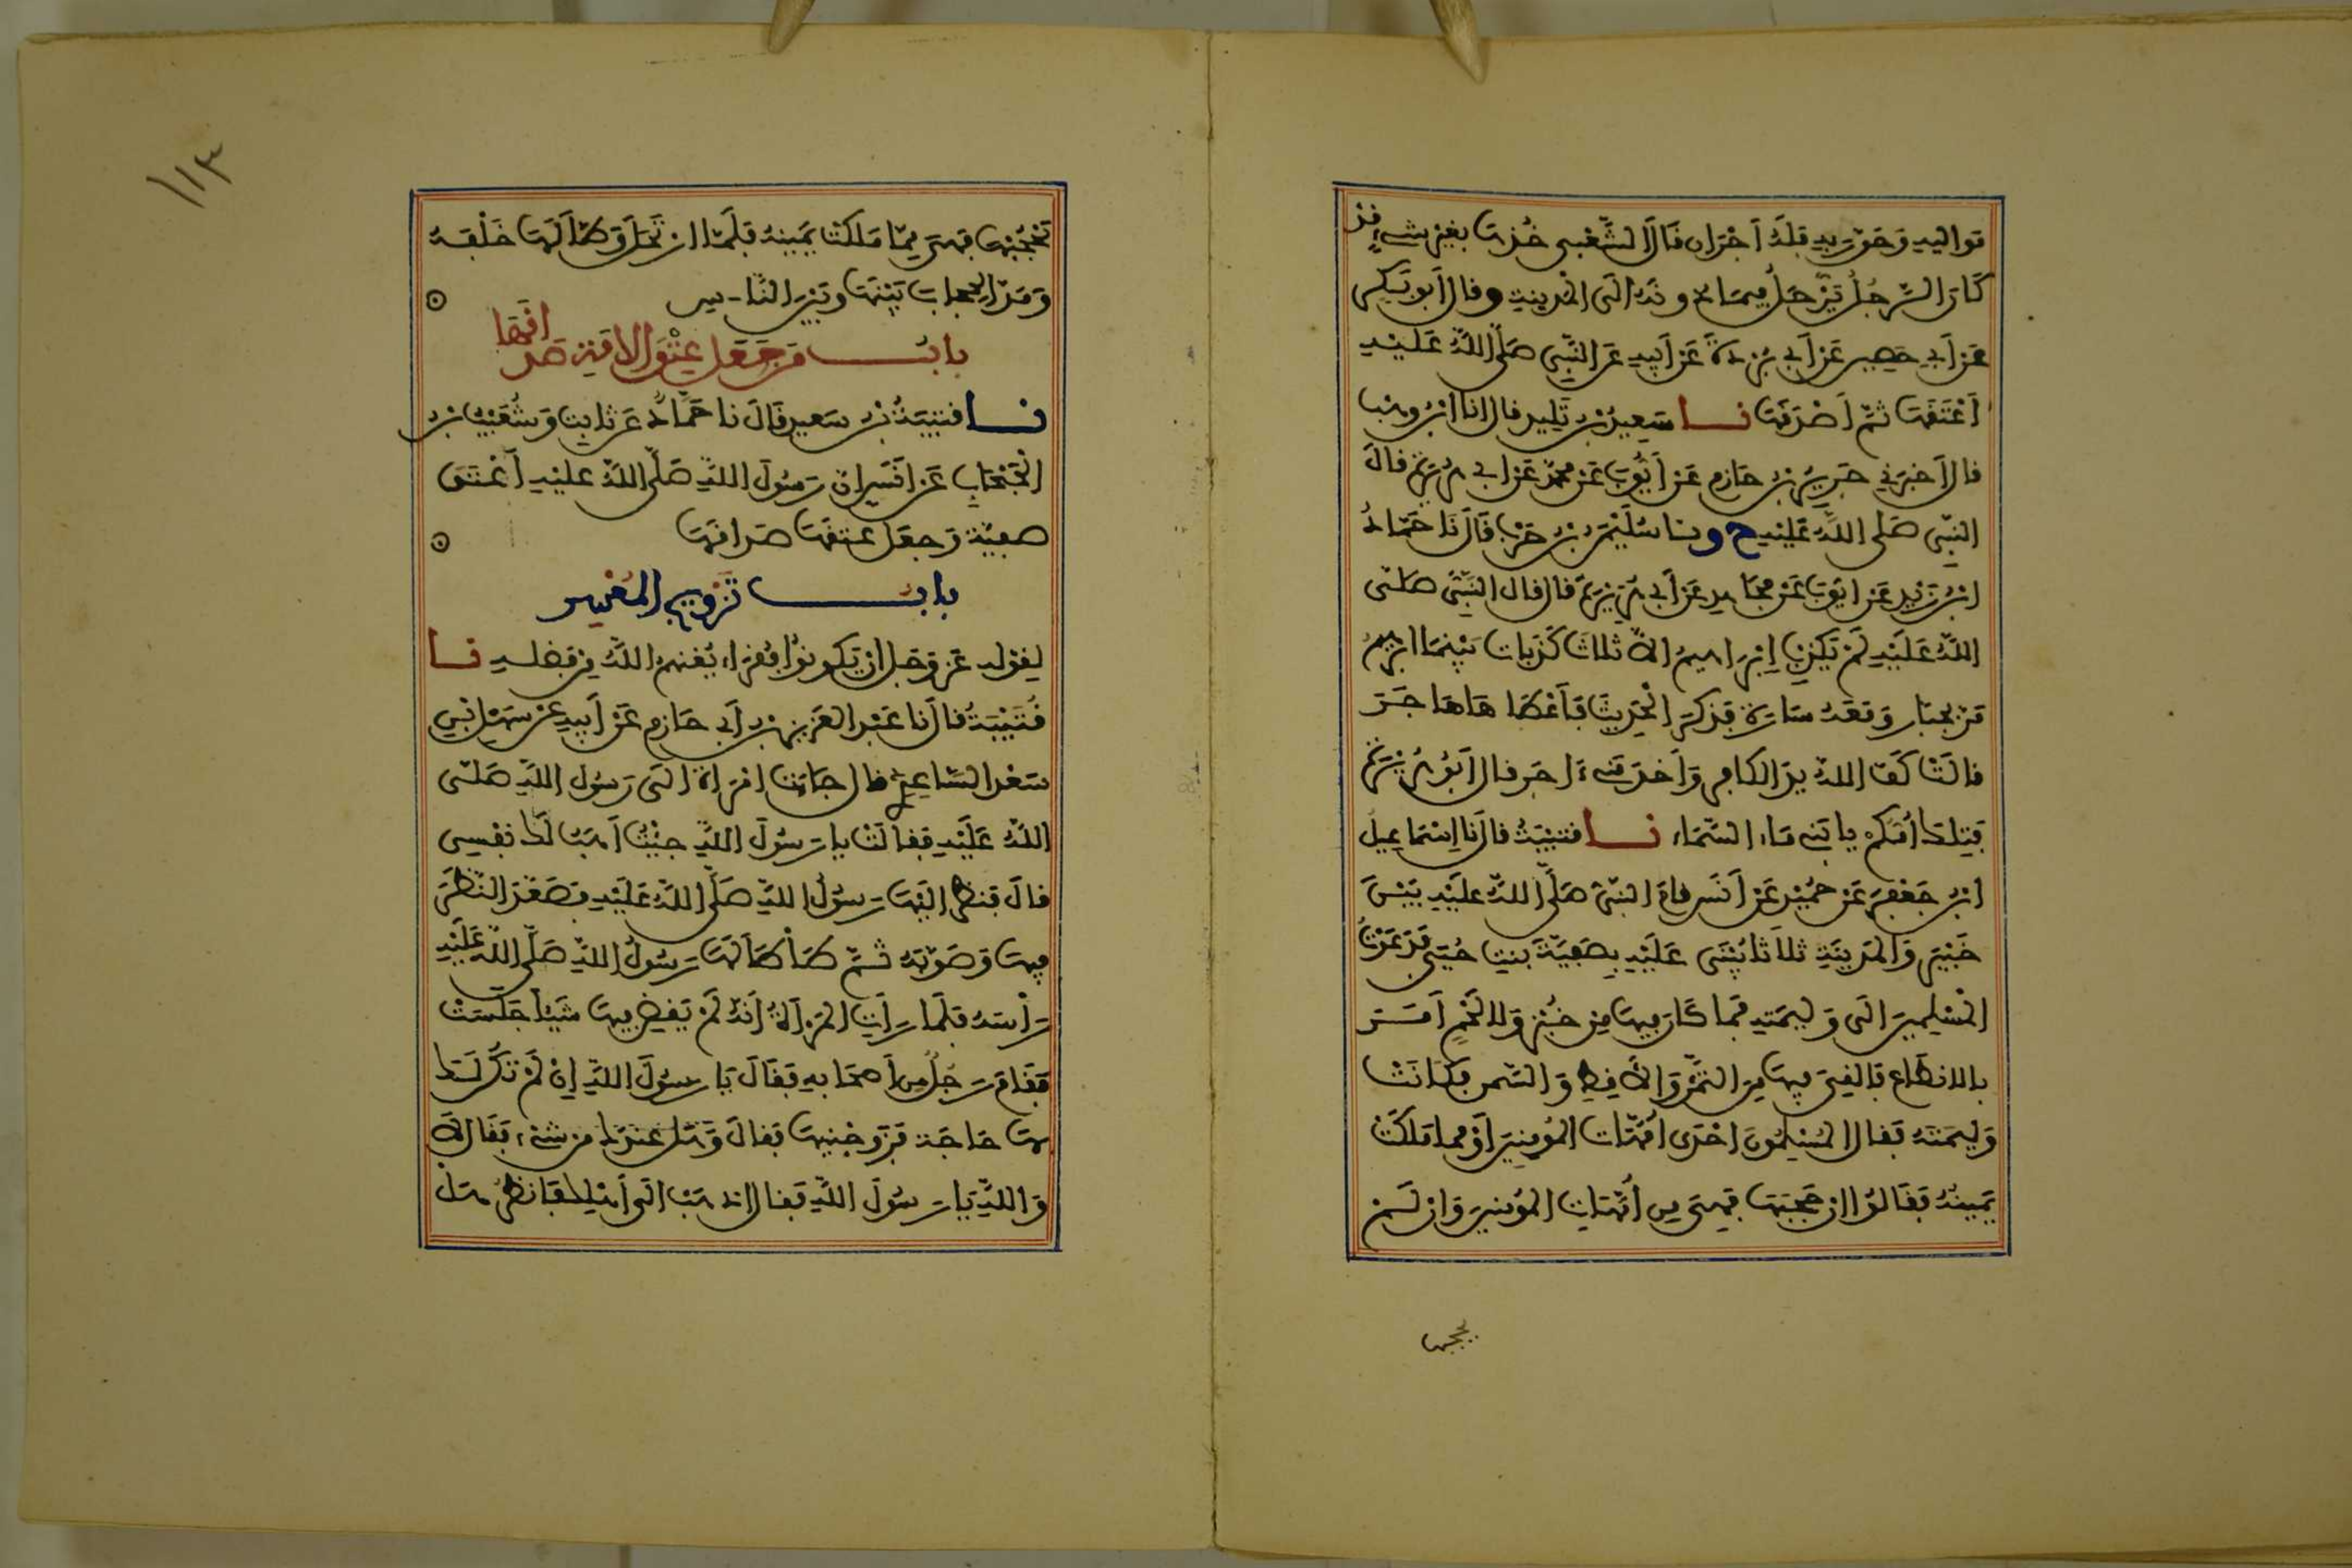 مواليه وحق ربه فله أجران قال الشعبي خذها بغير شيء قد
كان الرجل يرحل فيما دونه إلى المدينة وقال أبو بكر
عن أبي حصين عن أبي بردة عن أبيه عن النبي صلى الله عليه
أعتقها ثم أصدقها نا سعيد بن تليد قال أنا ابن وهب
قال أخبرني جرير بن حازم عن أيوب عن محمد عن أبي هريرة قال
النبي صلى الله عليه ح ونا سليمن بن حرب قال نا حماد
ابن زيد عن أيوب عن مجاهد عن أبي هريرة قال قال النبي صلى
الله عليه لم يكذب إبراهيم إلا ثلاث كذبات بينما ابرهيم
مر بجبار ومعه سارة فذكر الحديث فأعطاها هاجر
قالت كف الله يد الكافر وأخدمني آجر قال أبو هريرة
فتلك أمكم يا بني ماء السماء نا قتيبة قال نا إسماعيل
ابن جعفر عن حميد عن أنس قام النبي صلى الله عليه بين
خيبر والمدينة ثلاثا يبنى عليه بصفية بنت حيي فدعوت
المسلمين إلى وليمته فما كان فيها من خبز ولا لحم أمر
بالانطاع فالقي فيها من التمر والأقط والسمن فكانت
وليمته فقال المسلمون احدى أمهات المؤمنين أو مما ملكت
يمينه فقالوا إن حجبها فهي من أمهات المؤمنين وإن لم
يحجبها
١١٣
يحجبها فهي مما ملكت يمينه فلما ارتحل وطا لها خلفه
ومد الحجاب بينها وبين الناس
باب من جعل عتق الامة صداقها
نا قتيبة بن سعيد قال نا حماد عن ثابت وشعيب بن
الحبحاب عن أنس أن رسول الله صلى الله عليه أعتق
صفية وجعل عتقها صداقها
باب تزويج المعسر
لقوله عز وجل إن يكونوا فقراء يغنهم الله من فضله نا
قتيبة قال نا عبد العزيز بن أبي حازم عن أبيه عن سهل بن
سعد الساعدي قال جاءت امرأة إلى رسول الله صلى
الله عليه فقالت يا رسول الله جئت أهب لك نفسي
قال فنظر إليها رسول الله صلى الله عليه فصعد النظر
فيها وصوبه ثم طأطأ لها رسول الله صلى الله عليه
رأسه فلما رأت المرأة أنه لم يقض فيها شيئا جلست
فقام رجل من أصحابه فقال يا رسول الله إن لم تكن لك
بها حاجة فزوجنيها فقال وهل عندك من شيء فقال لا
والله يا رسول الله فقال اذهب إلى أهلك فانظر هل